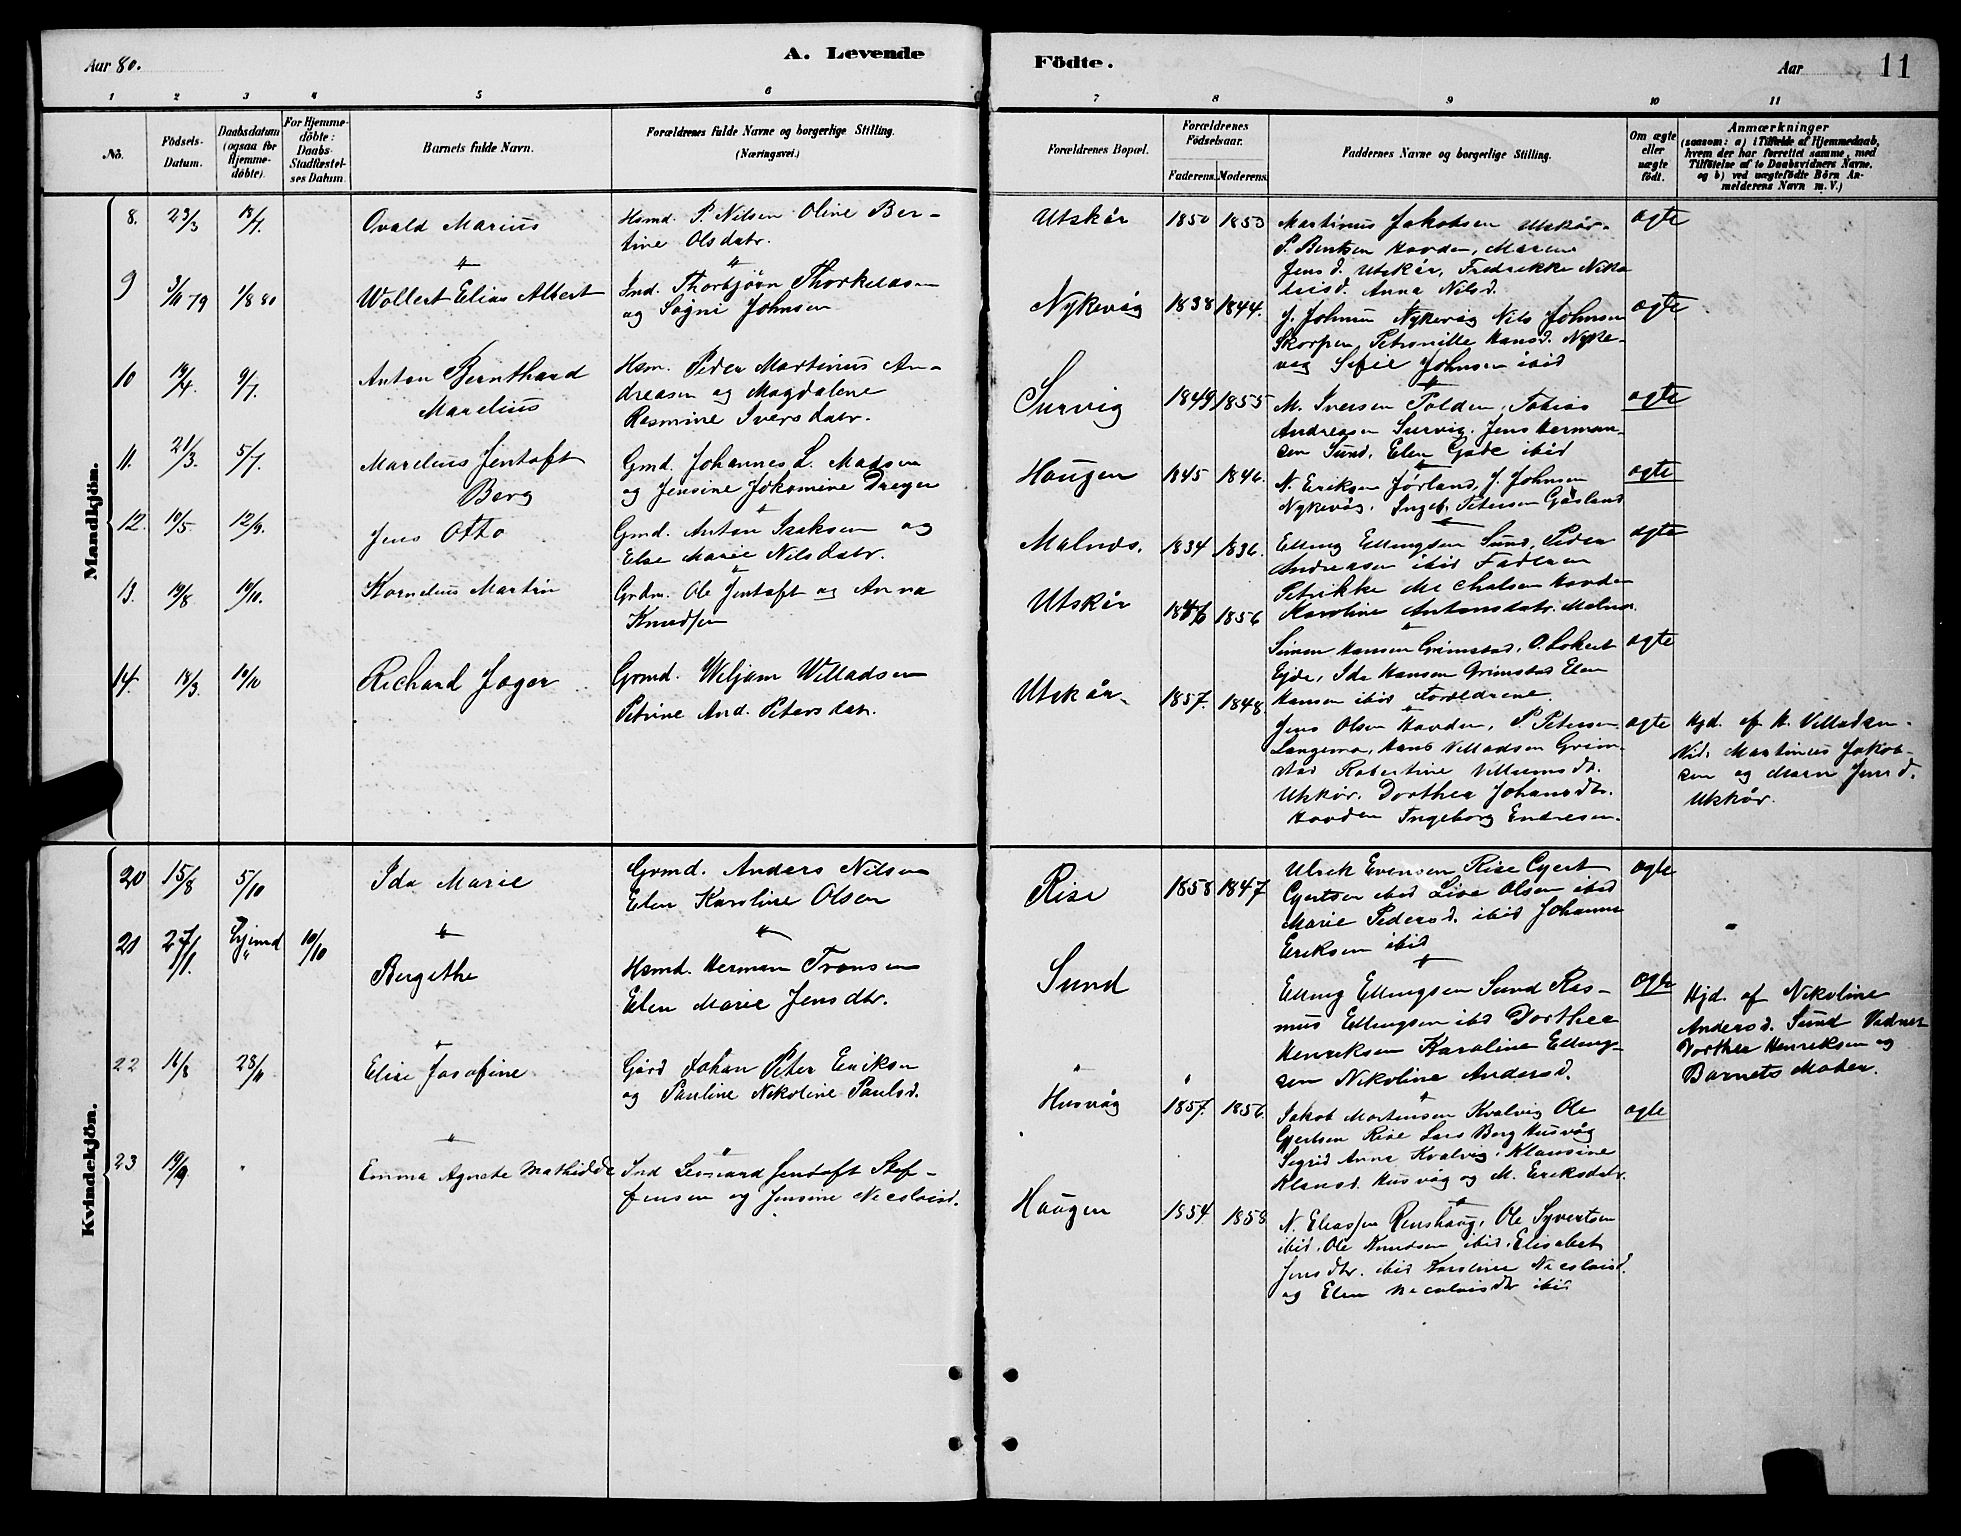 Aar 80.
A. Levende
Födte.
Aar
11
1 2 3 4 5 6
7 8 9 10 11
No.
Födsels-
Datum.
Daabsdatum
(ogsaa for
Hjemme-
döbte).
For Hjemme-
döbte:
Daabs-
Stadfæstel-
ses Datum.
Barnets fulde Navn.
Forældrenes fulde Navne og borgerlige Stilling.
(Næringsvei.)
Forældrenes Bopæl.
Forældrenes
Födselsaar.
Faderens. Moderens.
Faddernes Navne og borgerlige Stilling.
Om ægte
eller
uægte
födt.
Anmærkninger
(saasom: a) i Tilfælde af Hjemmedaab,
hvem der har forrettet samme, med
Tilföielse af to Daabsvidners Navne,
og b) ved uægtefödte Börn An-
melderens Navn m. V.)
Mandkjön.
8. 23/3 18/7. Ovald Marius
Hsmd. P. Nilsen Oline Ber-
tine Olsdatr.
Utskår 1850 1853
Martinus Jakobsen Utskår.
P. Bentsen Hovden, Maren
Jensd. Utskår, Fredrikke Niko
laisd. Anna Nilsd.
ægte
9 3/11 79 1/8 80 Wollert Elias Albert
Ind. Thorbjörn Thorkildsen
og Signe Johnsen
Nykevåg 1838 1844.
J. Johnsen Nykevåg Nils Johnsen
Skorpen Petronille Hansd. Nyke-
våg Sefie Johnsen ibid
ægte
10 18/4. 9/7. Anton Bernthard
Marelius
Hsm. Peder Martinus An-
dreasen og Magdalene
Rasmine Iversdatr.
Survig 1849 1855
M. Iversen Polden, Tobias
Andreasen Survig. Jens Herman-
sen Sund, Elen Gåde ibid
ægte
11. 21/3. 5/7. Marelius Jentoft
Berg
Gmd. Johannes L. Madsen
og Jensine Jokomine Dreyer
Haugen 1845 1846.
N. Eriksen Jörland, J. Johnsen
Nykevåg. Ingeb. Petersen Gåsland
ægte
12. 10/5. 12/9. Jens Otto
Gmd. Anton Isaksen og
Else Marie Nilsdatr.
Malnes. 1834 1836.
Elling Ellingsen Sund, Peder
Andreasen ibid Faderen
Petrikke Michalsen Hovden
Karoline Antonsdatr. Malnes.
ægte
13. 19/8 10/10. Kornelius Martin
Grdm. Ole Jentoft og Anna
Knudsen
Utskår 1856
Simon Hansen Grimstad, O. Lokert
Ejde, Ida Hansen Grimstad Elen
Hansen ibid Foreldrene
ægte
14. 18/3. 10/10 Richard Jager
Grmd. Wiljam Willadsen
Petrine And. Petersdatr.
Utskår. 1857. 1848.
Jens Olsen Hovden, P. Petersen
Langemo, Hans Villadsen Grim-
stad Robertine Villumsdt.
Utskår. Dorthea Johansdtr.
Hovden Ingeborg Endresen.
ægte
Hjd. af H. Villadsen.
Vid. Martinus Jakob-
sen og Maren Jensd.
Utskår.
Kvindekjön.
20 15/8 5/10 Ida Marie
Grmd. Anders Nilsen
Elen Karoline Olsen
Rise 1858 1847
Ulrik Evensen Rise Gjert
Gjertsen ibid Lise Olsen ibid
Marie Pedersd. ibid Johanna
Eriksen ibid
ægte
21 27/1. Hjemd 10/10 Bergithe
Hsmd. Herman Transen
Elen Marie Jensdtr.
Sund
Elling Ellingsen Sund Ras-
mus Ellingsen ibid Dorthea
Henriksen Karoline Elling-
sen Nikoline Andersd.
ægte
Hjd. af Nikoline
Andersd. Sund Vidner
Dorthea Henriksen og
Barnets Moder.
22 16/8 28/11 Elise Josofine
Gård Johan Peter Eriksen
og Pauline Nikoline Paulsd.
Husvåg 1857. 1856.
Jakob Mortensen Kvalvig Ole
Gjertsen Rise Lars Berg Husvåg
Sigrid Anna Kvalvig, Klausine
Klausd. Husvåg og M. Eriksdatr.
ægte
23 19/9 " Emma Agnete Mathilde
Ind Leonard Jentoft Stef-
fensen og Jensine Nicolaisd.
Haugen 1854 1858
N. Eliassen Renshaug, Ole Syvertsen
ibid. Ole Knudsen ibid. Elisabet
Jensdtr. ibid Karoline Nicolaisd.
og Elen Nicolaisdtr ibid